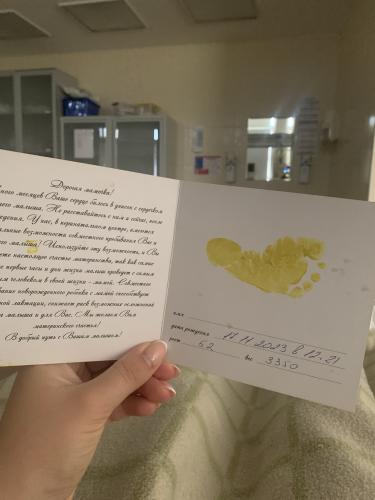 Дорогая мамочка!
много месяцев Ваше сердце билось в унисон с сердечком
его малыша. Не расставайтесь с ним и сейчас, после
рождения. У нас, в перинатальном центре, имеется
возможности совместного пребывания Вас и
его малыша! Используйте эту возможность, и Вы
настоящее счастье материнства, так как самые
первые часы и дни жизни малыш проведет с самым
человеком в своей жизни - мамой. Совместное
новорожденного ребенка с мамой способствует
лактации, снижает риск возможных осложнений
малыша и для Вас. Мы желаем Вам
материнского счастья!
В добрый путь с Вашим малышом!
имя
дата рождения 11 11 2023 в 12.21
рост 52 вес 3350